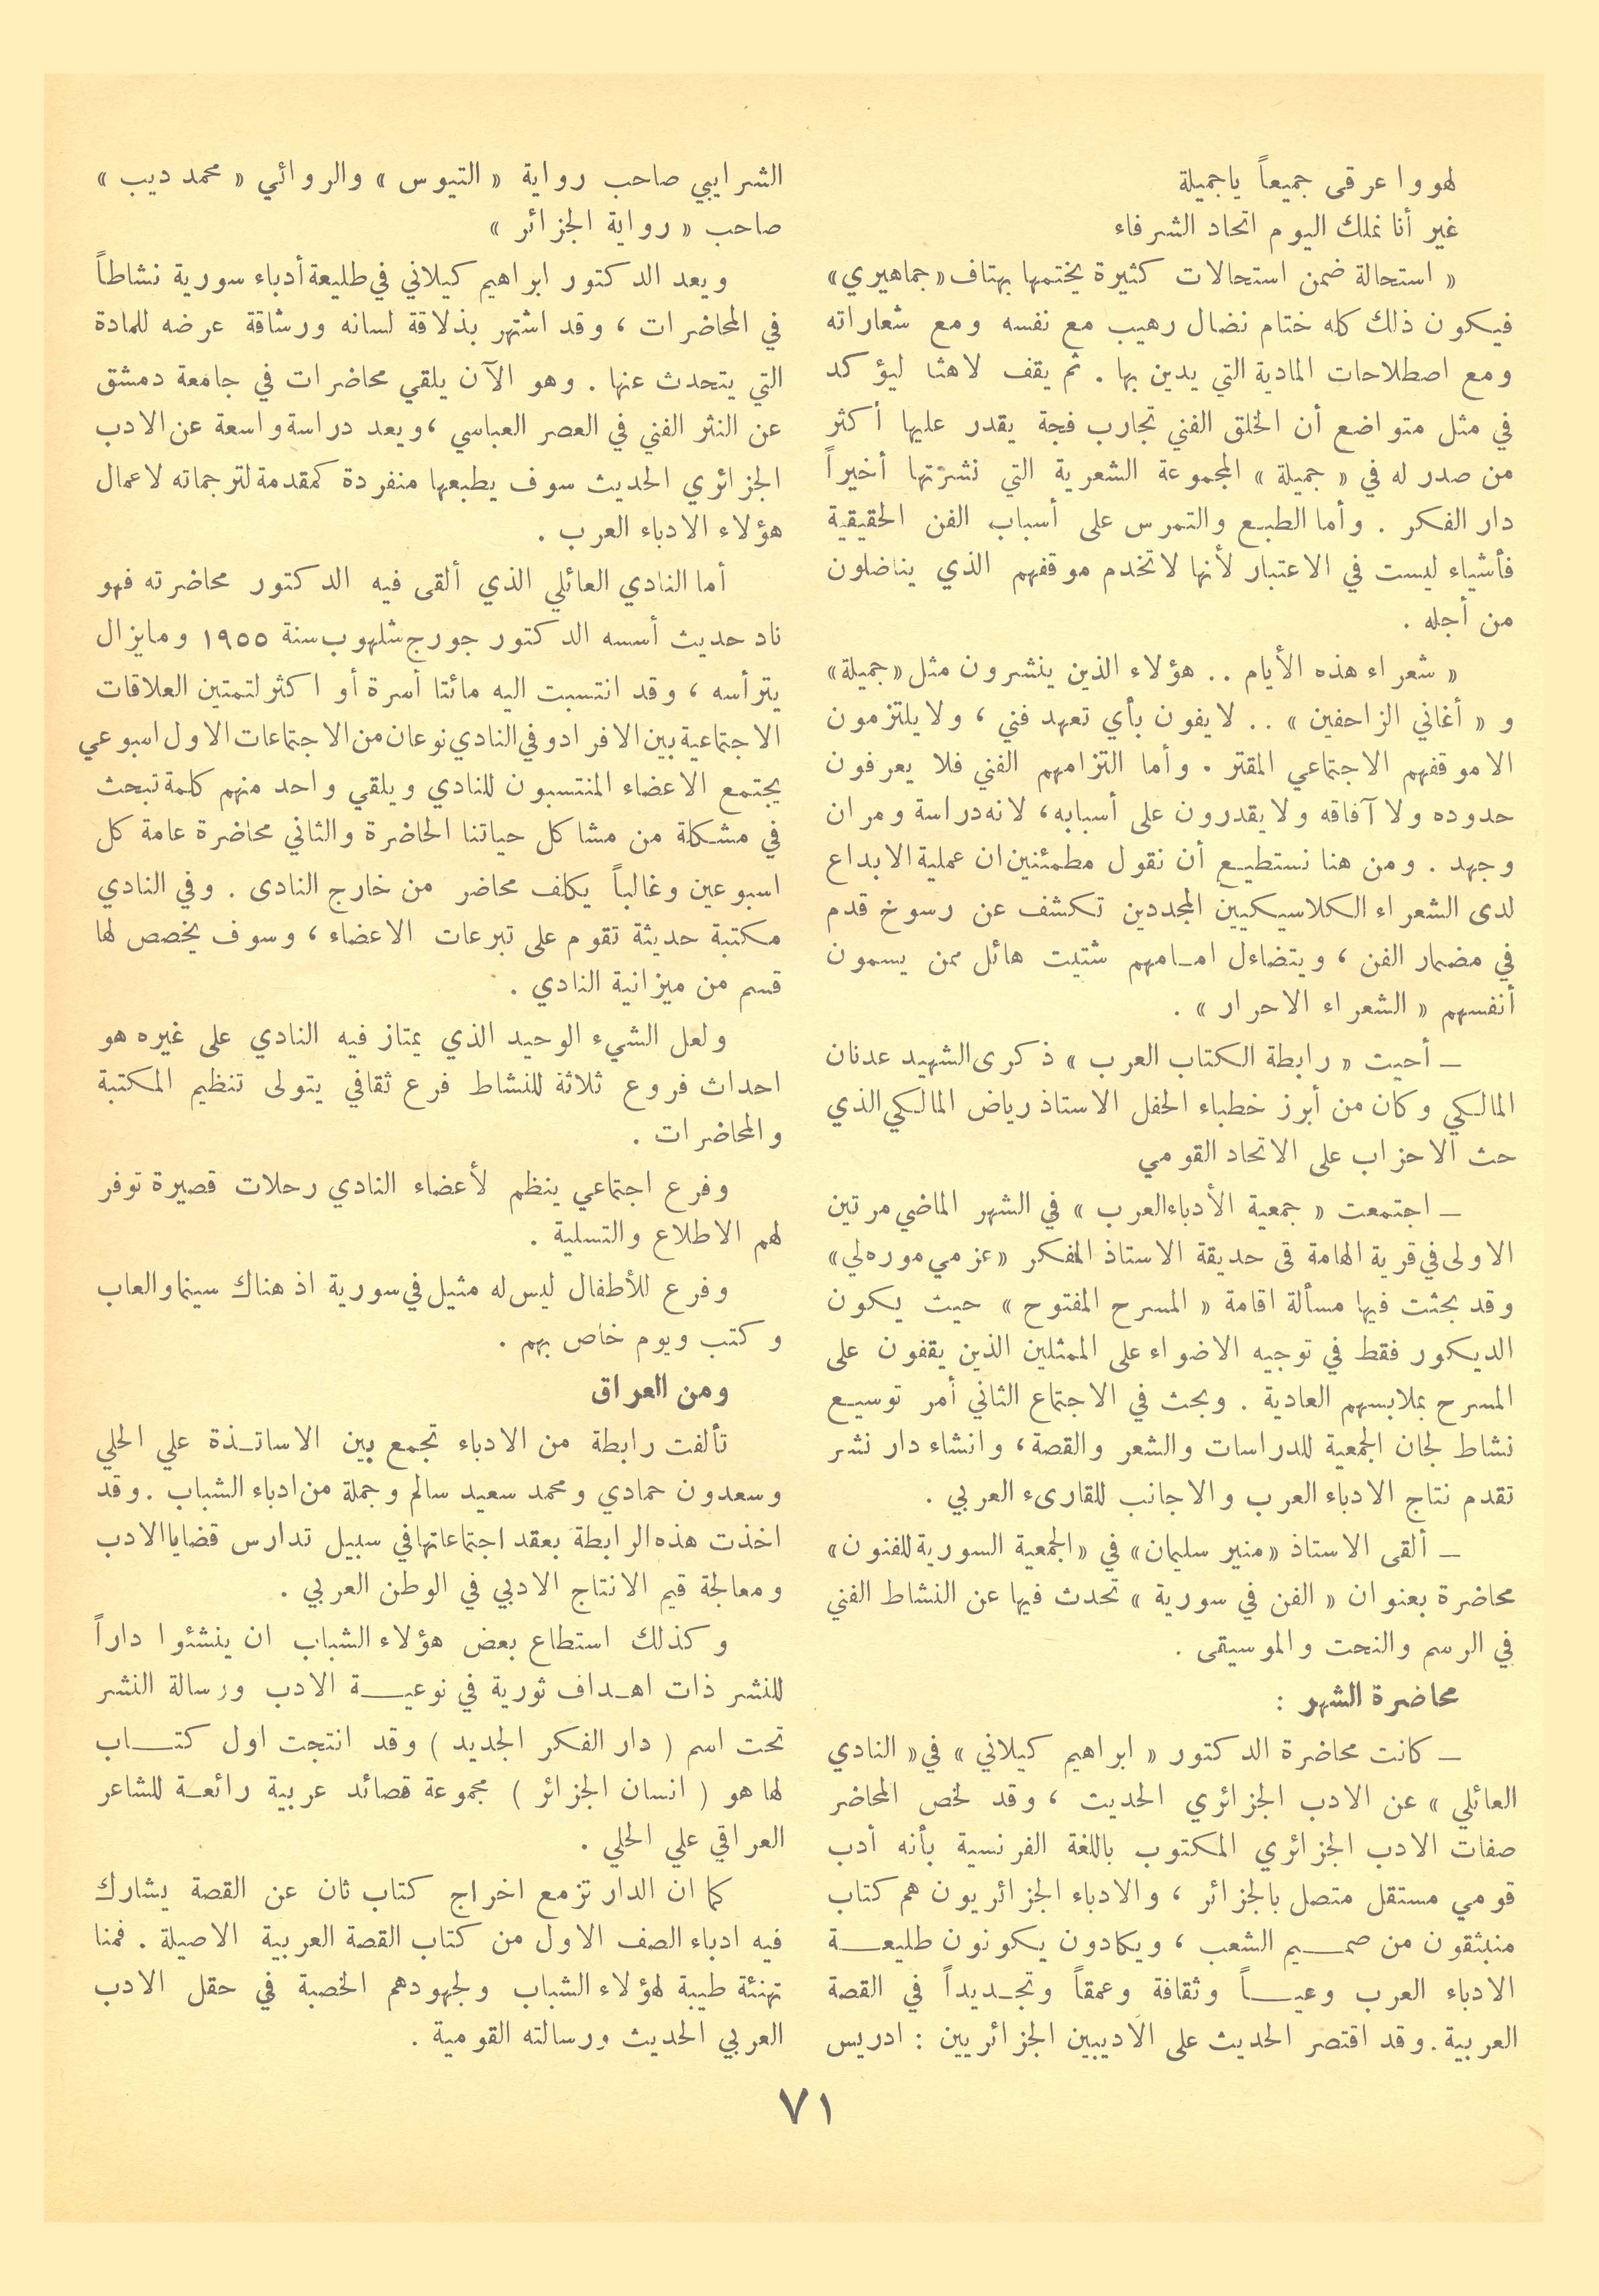 لهووا عرقى جميعاً ياجميلة
غير أنا نملك اليوم اتحاد الشرفاء
« استحالة ضمن استحالات كثيرة يختمها بهتاف «جماهيري»
فيكون ذلك كله ختام نضال رهيب مع نفسه ومع شعاراته
ومع اصطلاحات المادية التي يدين بها . ثم يقف لاهثا ليؤكد
في مثل متواضع أن الخلق الفني تجارب فجة يقدر عليها أكثر
من صدر له في « جميلة » المجموعة الشعرية التي نشرتها أخيراً
دار الفكر . وأما الطبع والتمرس على أسباب الفن الحقيقية
فأشياء ليست في الاعتبار لأنها لاتخدم موقفهم الذي يناضلون
من أجله .
« شعراء هذه الأيام .. هؤلاء الذين ينشرون مثل «جميلة»
و « أغاني الزاحفين » .. لايفون بأي تعهد فني ، ولا يلتزمون
الا موقفهم الاجتماعي المقتر . وأما التزامهم الفني فلا يعرفون
حدوده ولا آفاقه ولايقدرون على أسبابه ، لانه دراسة ومران
وجهد . ومن هنا نستطيع أن نقول مطمئنين ان عملية الابداع
لدى الشعراء الكلاسيكيين المجددين تكشف عن رسوخ قدم
في مضمار الفن ، ويتضاءل امامهم شتيت هائل ممن يسمون
أنفسهم « الشعراء الاحرار » .
– أحيت « رابطة الكتاب العرب » ذكرى الشهيد عدنان
المالكي وكان من أبرز خطباء الحفل الاستاذ رياض المالكي الذي
حث الاحزاب على الاتحاد القومي
– اجتمعت « جمعية الأدباء العرب » في الشهر الماضي مرتين
الاولى في قرية الهامة قى حديقة الاستاذ المفكر «عزمي موره لي»
وقد بحثت فيها مسألة اقامة « المسرح المفتوح » حيث يكون
الديكور فقط في توجيه الاضواء على الممثلين الذين يقفون على
المسرح بملابسهم العادية . وبحث في الاجتماع الثاني أمر توسيع
نشاط لجان الجمعية للدراسات والشعر والقصة ، وانشاء دار نشر
تقدم نتاج الادباء العرب والاجانب للقارىء العربي .
– ألقى الاستاذ «منير سليمان» في «الجمعية السورية للفنون»
محاضرة بعنوان « الفن في سورية » تحدث فيها عن النشاط الفني
في الرسم والنحت والموسيقى .
محاضرة الشهر :
– كانت محاضرة الدكتور « ابراهيم كيلاني » في « النادي
العائلي » عن الادب الجزائري الحديث ، وقد لخص المحاضر
صفات الادب الجزائري المكتوب باللغة الفرنسية بأنه أدب
قومي مستقل متصل بالجزائر ، والادباء الجزائريون هم كتاب
منبثقون من صميم الشعب ، ويكادون يكونون طليعة
الادباء العرب وعياً وثقافة وعمقاً وتجديداً في القصة
العربية . وقد اقتصر الحديث على الاديبين الجزائريين : ادريس
الشرايبي صاحب رواية « التيوس » والروائي « محمد ديب »
صاحب « رواية الجزائر »
ويعد الدكتور ابراهيم كيلاني في طليعة أدباء سورية نشاطاً
في المحاضرات ، وقد اشتهر بذلاقة لسانه ورشاقة عرضه للمادة
التي يتحدث عنها . وهو الآن يلقي محاضرات في جامعة دمشق
عن النثر الفني في العصر العباسي ، ويعد دراسة واسعة عن الادب
الجزائري الحديث سوف يطبعها منفردة كمقدمة لترجماته لاعمال
هؤلاء الادباء العرب .
أما النادي العائلي الذي ألقى فيه الدكتور محاضرته فهو
ناد حديث أسسه الدكتور جورج شلهوب سنة ١٩٥٥ ومايزال
يترأسه ، وقد انتسبت اليه مائتا أسرة أو اكثر لتمتين العلاقات
الاجتماعية بين الافراد وفي النادي نوعان من الاجتماعات الاول اسبوعي
يجتمع الاعضاء المنتسبون للنادي ويلقي واحد منهم كلمة تبحث
في مشكلة من مشاكل حياتنا الحاضرة والثاني محاضرة عامة كل
اسبوعين وغالباً يكلف محاضر من خارج النادى . وفي النادي
مكتبة حديثة تقوم على تبرعات الاعضاء ، وسوف يخصص لها
قسم من ميزانية النادي .
ولعل الشيء الوحيد الذي يمتاز فيه النادي على غيره هو
احداث فروع ثلاثة للنشاط فرع ثقافي يتولى تنظيم المكتبة
والمحاضرات .
وفرع اجتماعي ينظم لأعضاء النادي رحلات قصيرة توفر
لهم الاطلاع والتسلية .
وفرع للأطفال ليس له مثيل في سورية اذ هناك سينما والعاب
وكتب ويوم خاص بهم .
ومن العراق
تألفت رابطة من الادباء تجمع بين الاساتذة علي الحلي
وسعدون حمادي ومحمد سعيد سالم وجملة من ادباء الشباب . وقد
اخذت هذه الرابطة بعقد اجتماعاتها في سبيل تدارس قضايا الادب
ومعالجة قيم الانتاج الادبي في الوطن العربي .
وكذلك استطاع بعض هؤلاء الشباب ان ينشئوا داراً
للنشر ذات اهداف ثورية في نوعية الادب ورسالة النشر
تحت اسم ( دار الفكر الجديد ) وقد انتجت اول كتاب
لها هو ( انسان الجزائر ) مجموعة قصائد عربية رائعة للشاعر
العراقي علي الحلي .
كما ان الدار تزمع اخراج كتاب ثان عن القصة يشارك
فيه ادباء الصف الاول من كتاب القصة العربية الاصيلة . فمنا
تهنئة طيبة لهؤلاء الشباب ولجهودهم الخصبة في حقل الادب
العربي الحديث ورسالته القومية .
٧١